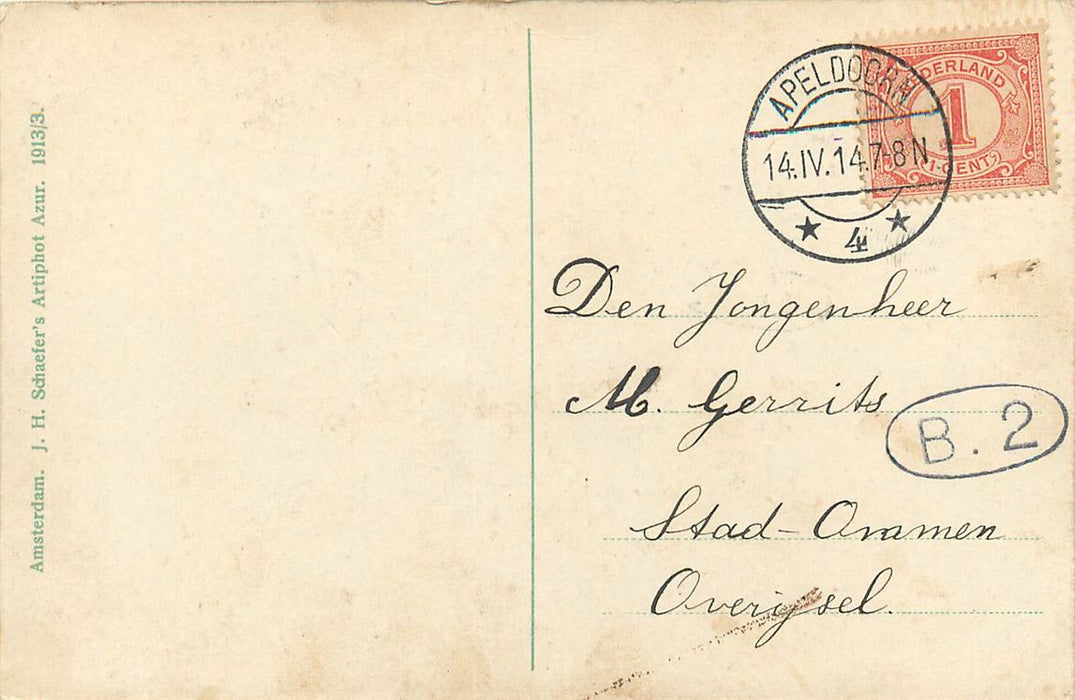 Amsterdam. J. H. Schaefer's Artiphot Azur. 1913/3.
NEDERLAND
1
1·CENT
APELDOORN
14.IV.14.7-8N
4
Den Jongenheer
M. Gerrits
B. 2
Stad-Ommen
Overijsel.